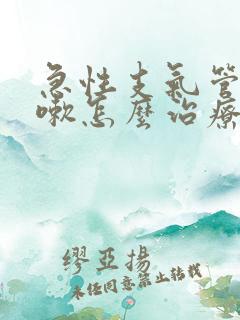 急性支氣管
嗽怎麼治療
繆亞揚
未經同意禁止轉載